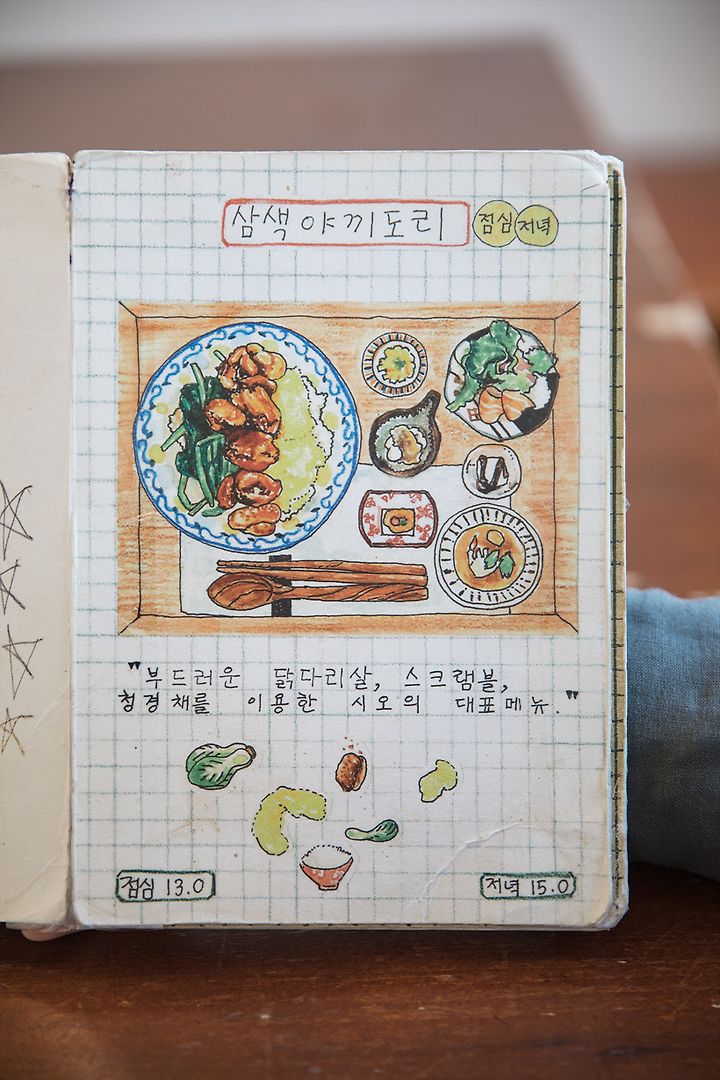 삼색야끼도리 점심 저녁
"부드러운 닭다리살, 스크램블,
청경채를 이용한 시오의 대표메뉴."
점심 13.0 저녁 15.0